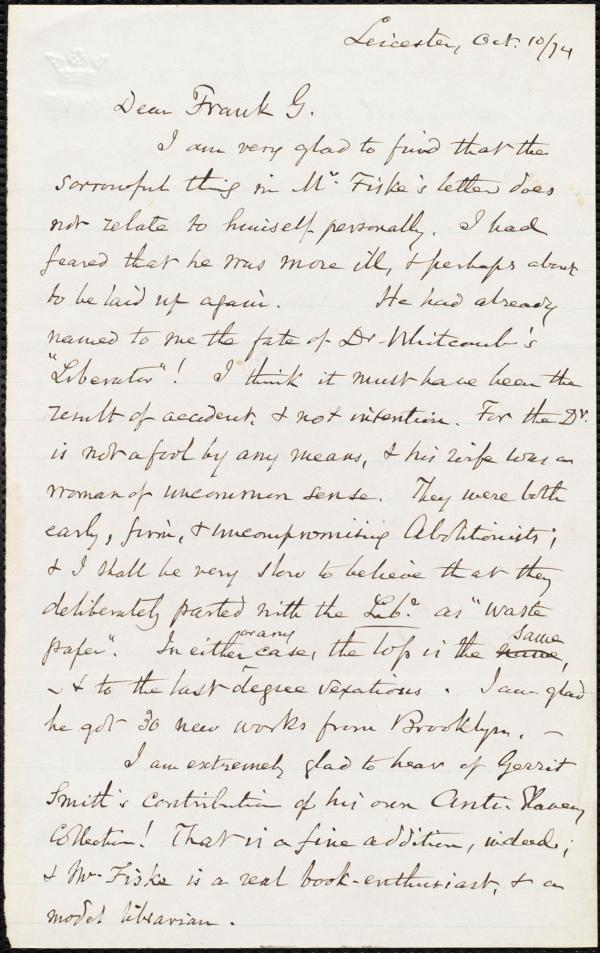 Leicester, Oct. 10/74
Dear Frank G.
I am very glad to find that the
sorrowful thing in Mr. Fiske's letter does
not relate to himself personally. I had
feared that he was more ill, & perhaps about
to be laid up again. He had already
named to me the fate of Dr. Whitcomb's
"Liberator"! I think it must have been the
result of accident, & not intention. For the Dr.
is not a fool by any means, & his wife was a
woman of uncommon sense. They were both
early, firm, & uncompromising Abolitionists;
& I shall be very slow to believe that they
deliberately parted with the Libr. as "waste
paper". In either or any case, the loss is the name same,
- & to the last degree vexatious. I am glad
he got 30 new works from Brooklyn. -
I am extremely glad to hear of Gerrit
Smith's contribution of his own Anti-Slavery
Collection! That is a fine addition, indeed;
& Mr. Fiske is a real book-enthusiast, & a
model librarian.